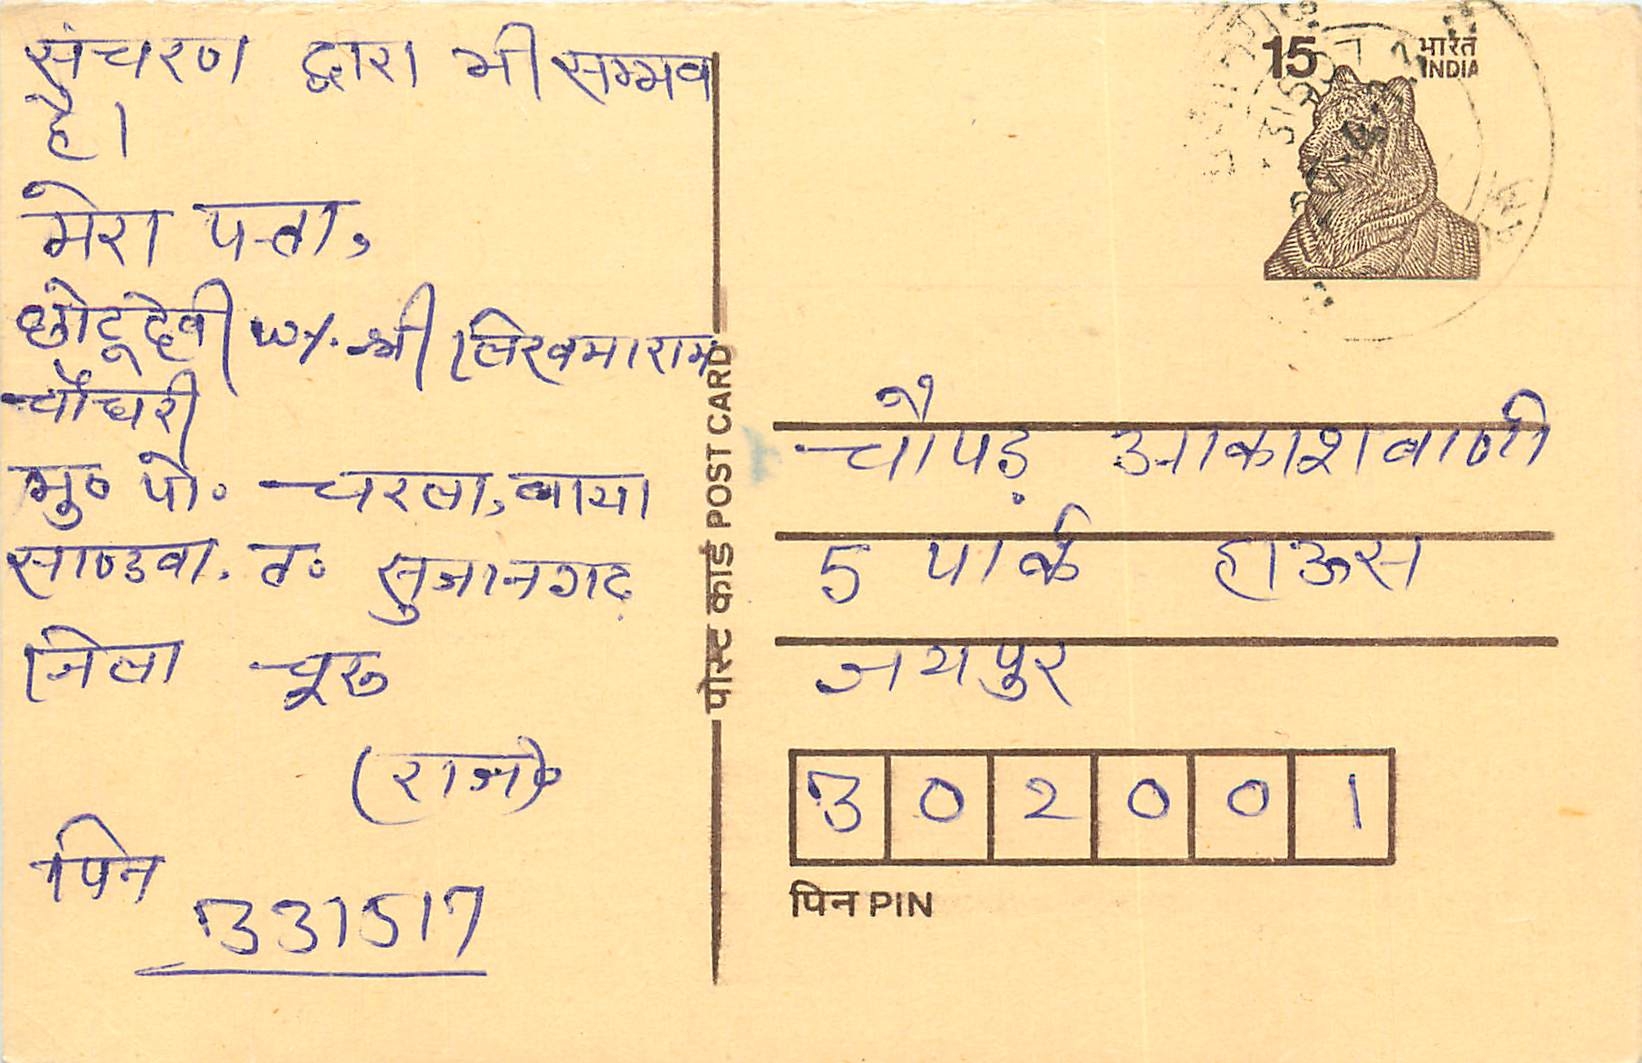 संचरण द्वारा भी सम्भव
है।
मेरा पता,
छोटूदेवी w/. श्री लिखमाराम
चौधरी
मु० पो० चरला, वाया
साण्डवा. त० सुजानगढ़
जिला चूरू
(राज०)
पिन
331517
पोस्ट कार्ड POST CARD
15 भारत
INDIA
चौपड़ आकाशवाणी
5 पार्क हाऊस
जयपुर
302001
पिन PIN